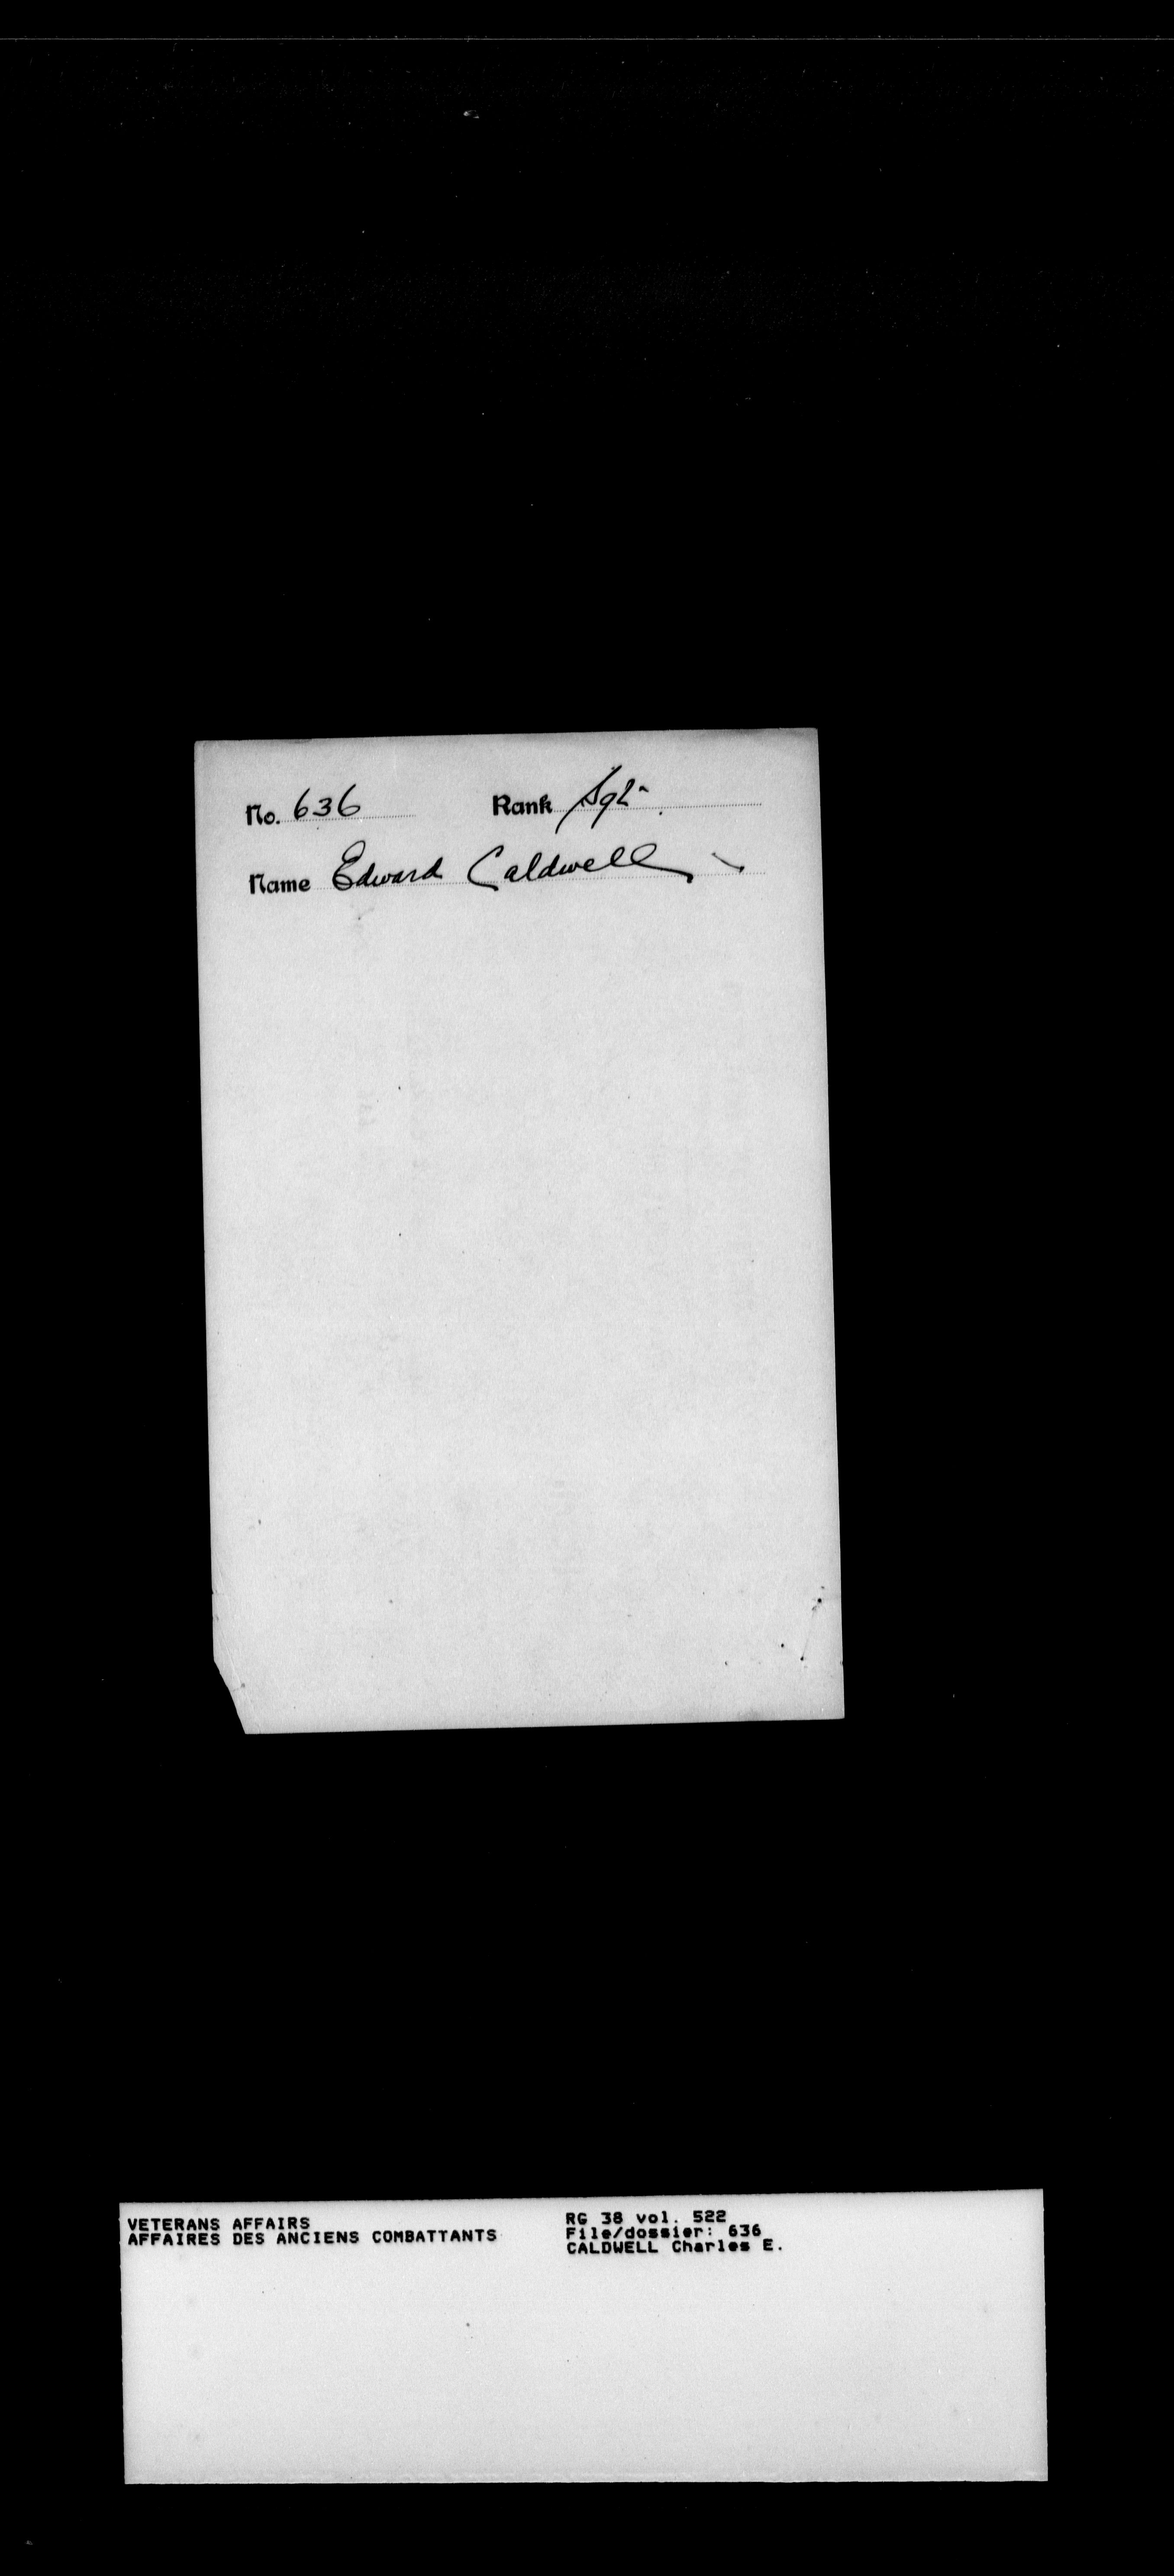 No. 636 Rank Sgt.
Name Edward Caldwell
VETERANS AFFAIRS
AFFAIRES DES ANCIENS COMBATTANTS
RG 38 vol. 522
File/dossier: 636
CALDWELL Charles E.